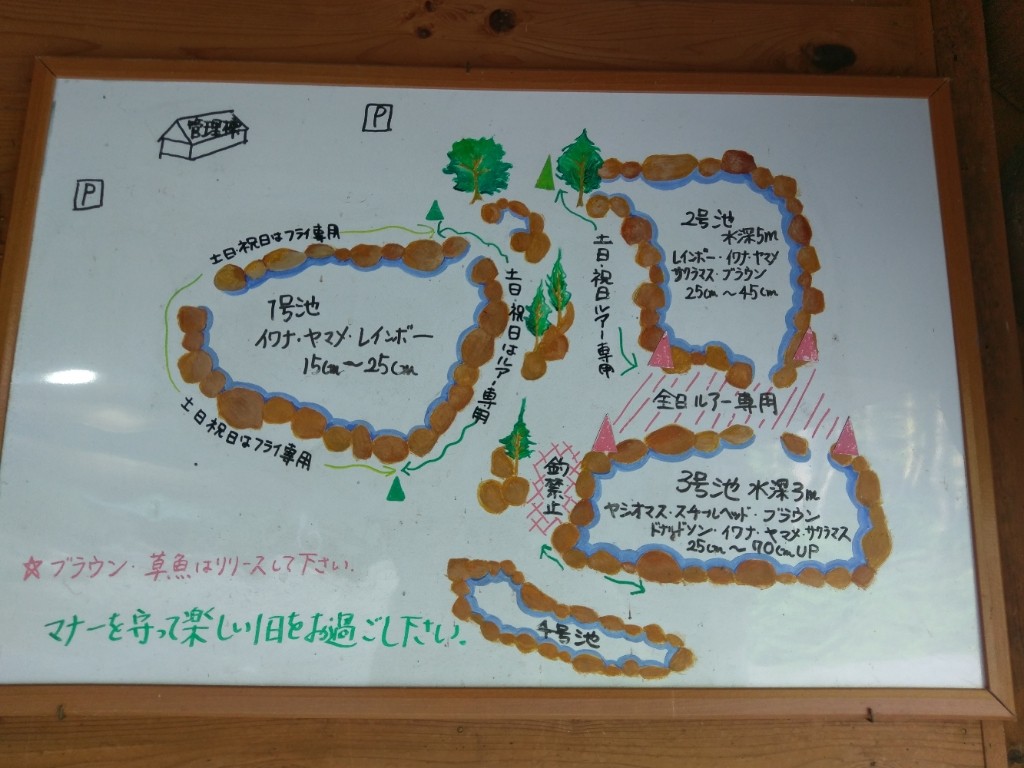 管理棟
P
P
土日祝日はフライ専用
1号池
イワナ・ヤマメ・レインボー
15cm〜25cm
土日祝日はフライ専用
土日祝日はルアー専用
土日祝日ルアー専用
2号池
水深5m
レインボー・イワナ・ヤマメ
サクラマス・ブラウン
25cm〜45cm
全日ルアー専用
釣禁止
3号池 水深3m
ヤシオマス・スチールヘッド・ブラウン
ドナルドソン・イワナ・ヤマメ・サクラマス
25cm〜70cmUP
4号池
☆ブラウン・草魚はリリースして下さい.
マナーを守って楽しい1日をお過ごし下さい.